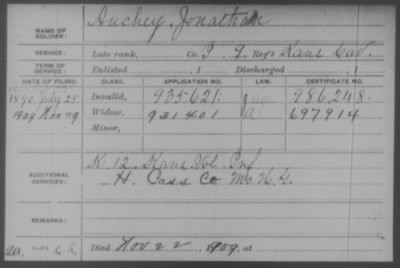 NAME OF SOLDIER: Duckey, Jonathan
SERVICE: Late rank, Co. I, 9 Reg't Kans Cav.
TERM OF SERVICE: Enlisted , 1 Discharged , 1
DATE OF FILING. CLASS. APPLICATION NO. LAW. CERTIFICATE NO.
1890 July 25 Invalid, 935.621. 986.248.
1909 Nov 29 Widow, 931401 697914
Minor,
ADDITIONAL SERVICES: K. 12. Kans. Vol. Inf
H. Cass Co Mo H. G.
REMARKS:
Died Nov 22, 1909, at